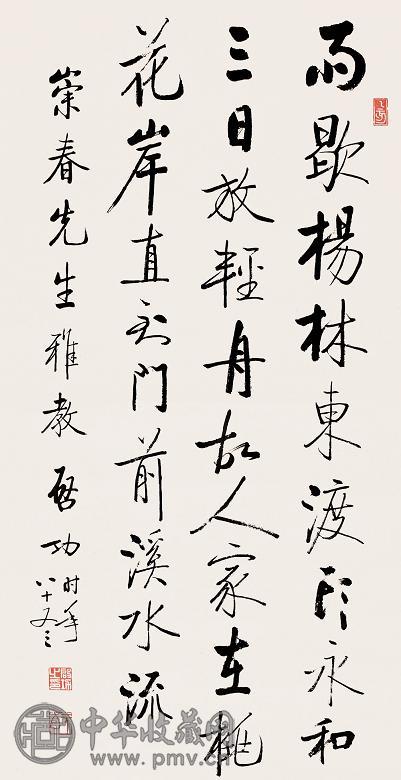 雨歇楊林東渡头永和
三日放輕舟故人家在桃
花岸直到門前溪水流
崇春先生雅教 啓功 时年
八十又三
中华收藏网
www.pmv.cn